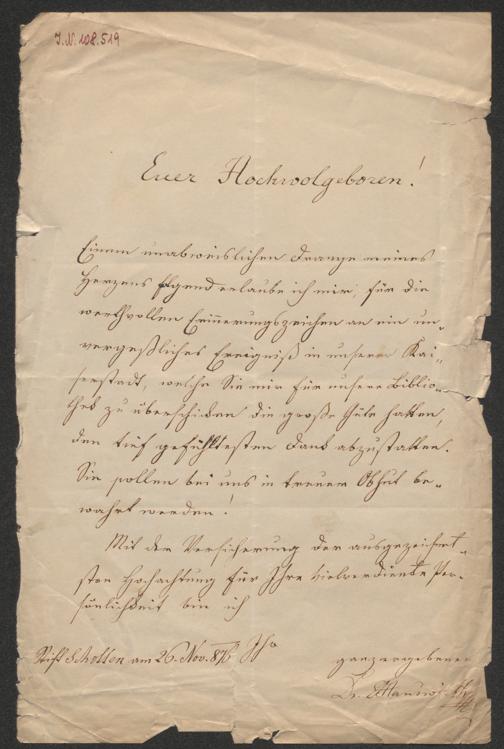 J.N. 108.519
Euer Hochwolgeboren!
Einem unabweislichen Drange meines
Herzens folgend erlaube ich mir, für die
werthvollen Erinnerungszeichen an ein un-
vergeßliches Ereigniß in unserer Kai-
serstadt, welche Sie mir für unsere Biblio-
thek zu überschicken die große Güte hatten,
den tief gefühltesten Dank abzustatten.
Sie sollen bei uns in treuer Obhut be-
wahrt werden!
Mit der Versicherung der ausgezeichnet-
sten Hochachtung für Ihre vielverdiente Per-
sönlichkeit bin ich
Ihr
Stift Schotten am 26. Nov. 876
ganz ergebener
Dr.